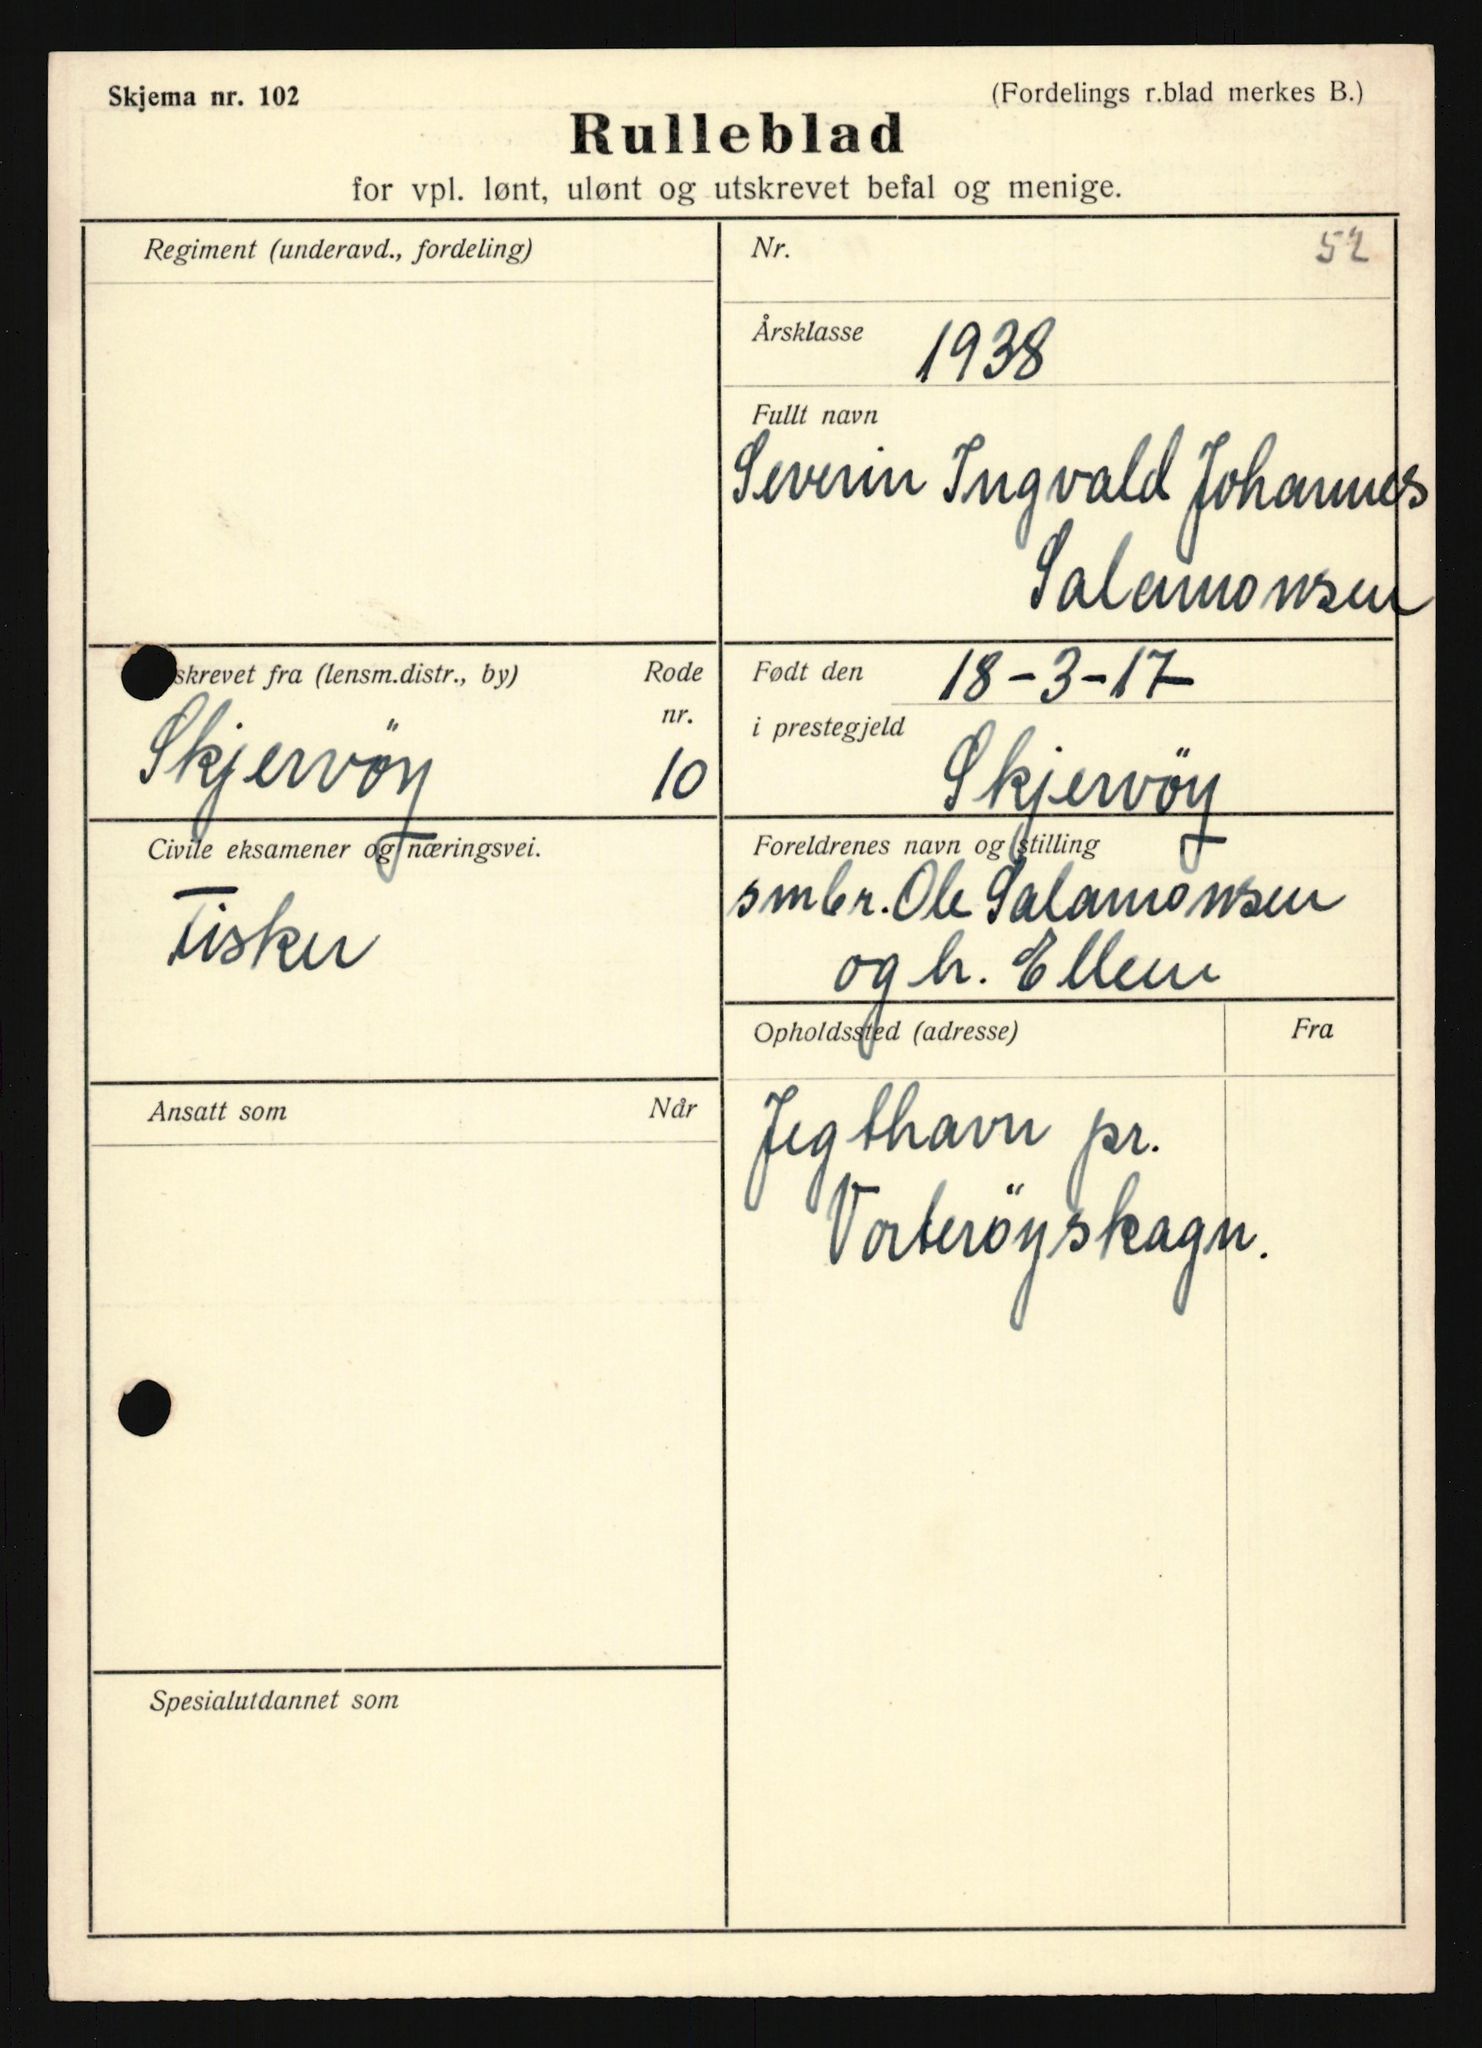 Skjema nr. 102
(Fordelings r.blad merkes B.)
Rulleblad
for vpl. lønt, ulønt og utskrevet befal og menige.
Regiment (underavd., fordeling)
Nr.
52
Årsklasse 1938
Fullt navn
Severin Ingvald Johannes
Salamonsen
skrevet fra (lensm.distr., by)
Rode
nr.
Skjervöy
10
Født den 18-3-17
i prestegjeld
Skjervöy
Civile eksamener og næringsvei.
Fisker
Foreldrenes navn og stilling
smbr. Ole Salamonsen
og h. Ellen
Ansatt som
Når
Opholdssted (adresse)
Fra
Jegthavn pr.
Vorteröyskagn.
Spesialutdannet som